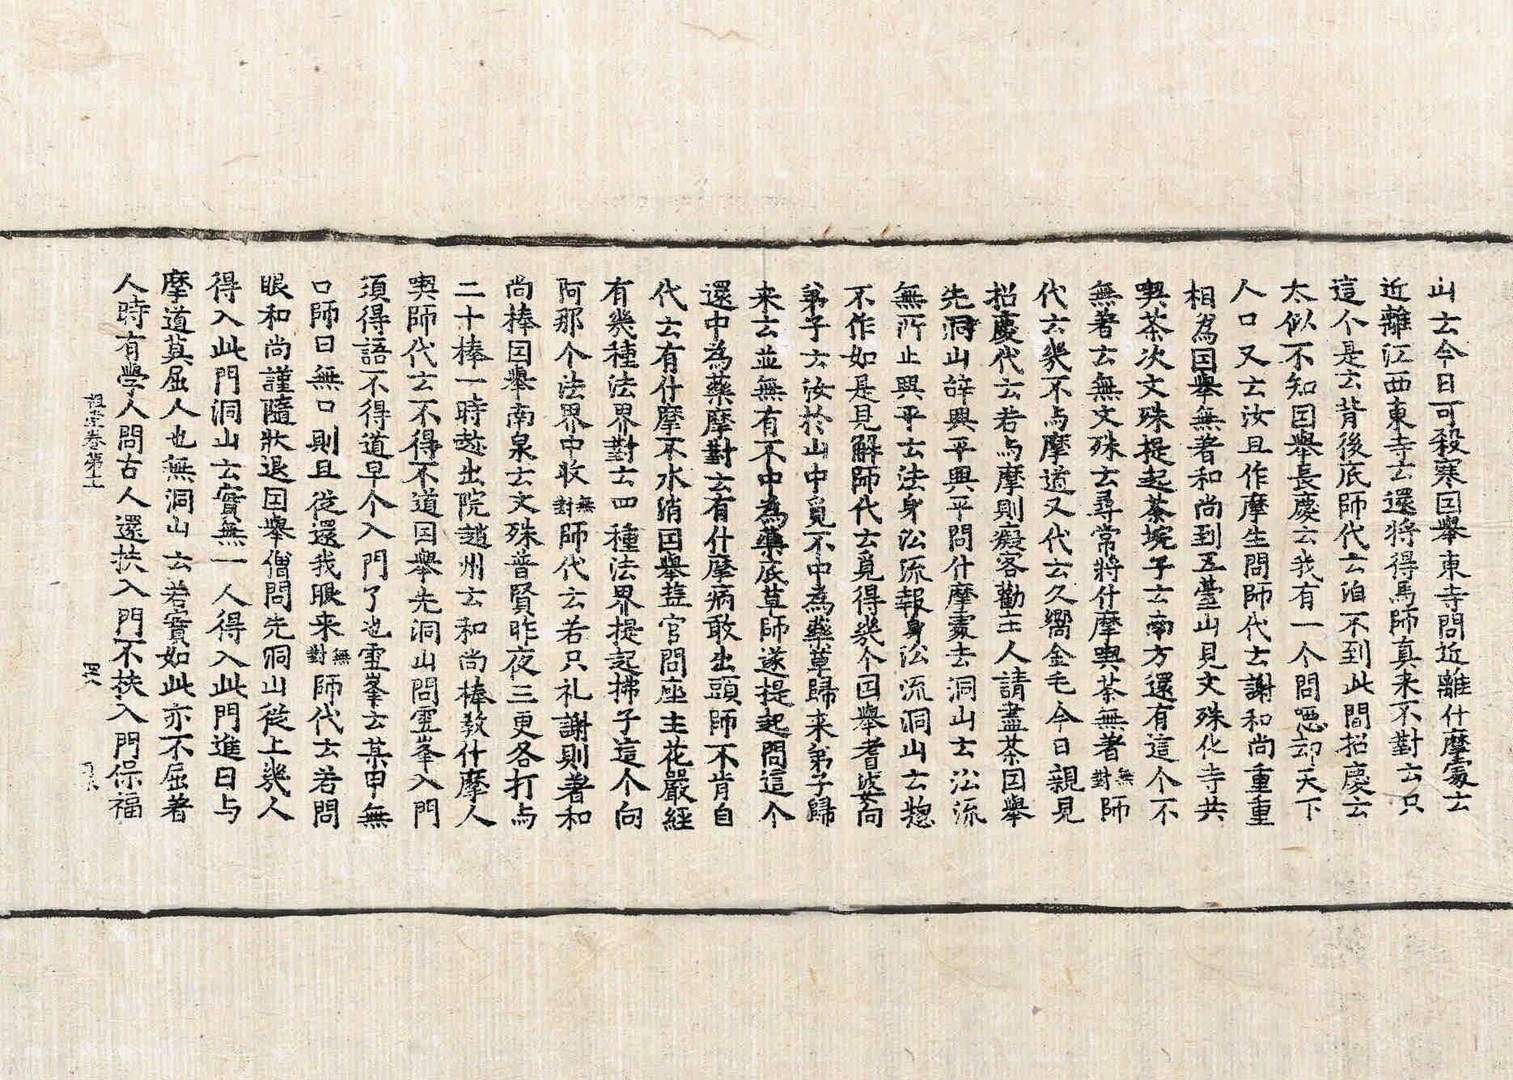 山云今日可殺寒因舉東寺問近離什摩處云
近離江西東寺云還將得馬師真来不對云只
這个是云背後底師代云洎不到此間招慶云
太似不知因舉長慶云我有一个問噁却天下
人口又云汝且作摩生問師代云謝和尚重重
相為因舉無著和尚到五臺山見文殊化寺共
喫茶次文殊提起茶埦子云南方還有這个不
無著云無文殊云尋常將什摩喫茶無著無對師
代云幾不与摩道又代云久嚮金毛今日親見
招慶代云若与摩則癡客勸主人請盡茶因舉
先洞山辞興平興平問什摩處去洞山云㳂流
無所止興平云法身㳂流報身㳂流洞山云惣
不作如是見解師代云覓得幾个因舉耆婆向
弟子云汝於山中覓不中為藥草歸来弟子歸
来云並無有不中為藥底草師遂提起問這个
還中為藥摩對云有什摩病敢出頭師不肯自
代云有什摩不水消因舉塩官問座主花嚴經
有幾種法界對云四種法界提起拂子這个向
阿那个法界中收無對師代云若只礼謝則著和
尚棒因舉南泉云文殊普賢昨夜三更各打与
二十棒一時趂出院趙州云和尚棒教什摩人
喫師代云不得不道因舉先洞山問雪峯入門
須得語不得道早个入門了也雪峯云某甲無
口師曰無口則且從還我眼来無對師代云若問
眼和尚謹隨狀退因舉僧問先洞山從上幾人
得入此門洞山云實無一人得入此門進曰与
摩道莫屈人也無洞山云若實如此亦不屈著
人時有學人問古人還扶入門不扶入門保福
祖堂卷第十一